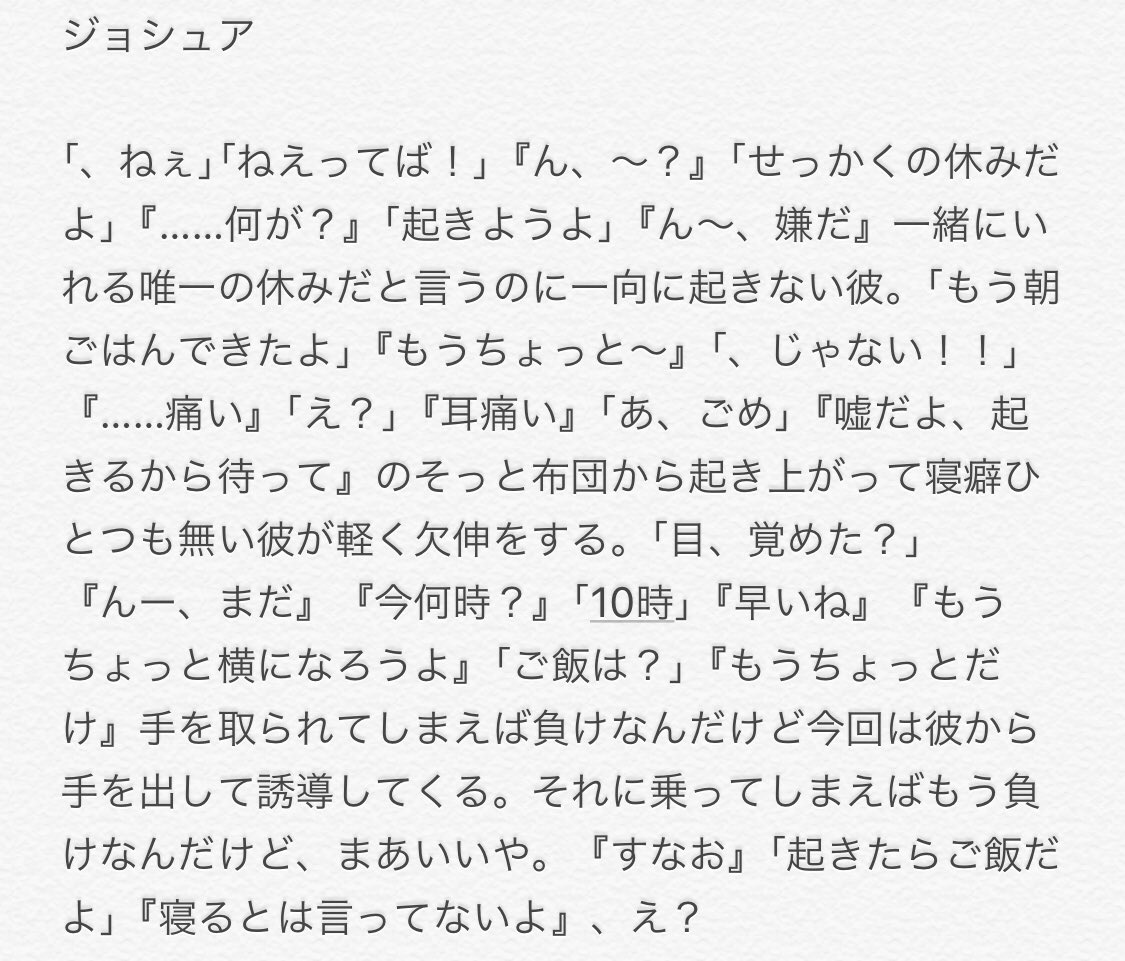 ジョシュア
「、ねぇ」「ねえってば！」『ん、〜？』「せっかくの休みだ
よ」『……何が？』「起きようよ」『ん〜、嫌だ』一緒にい
れる唯一の休みだと言うのに一向に起きない彼。「もう朝
ごはんできたよ」『もうちょっと〜』「、じゃない！！」
『……痛い』「え？」『耳痛い』「あ、ごめ」『嘘だよ、起
きるから待って』のそっと布団から起き上がって寝癖ひ
とつも無い彼が軽く欠伸をする。「目、覚めた？」
『んー、まだ』『今何時？』「10時」『早いね』『もう
ちょっと横になろうよ』「ご飯は？」『もうちょっとだ
け』手を取られてしまえば負けなんだけど今回は彼から
手を出して誘導してくる。それに乗ってしまえばもう負
けなんだけど、まあいいや。『すなお』「起きたらご飯だ
よ」『寝るとは言ってないよ』、え？